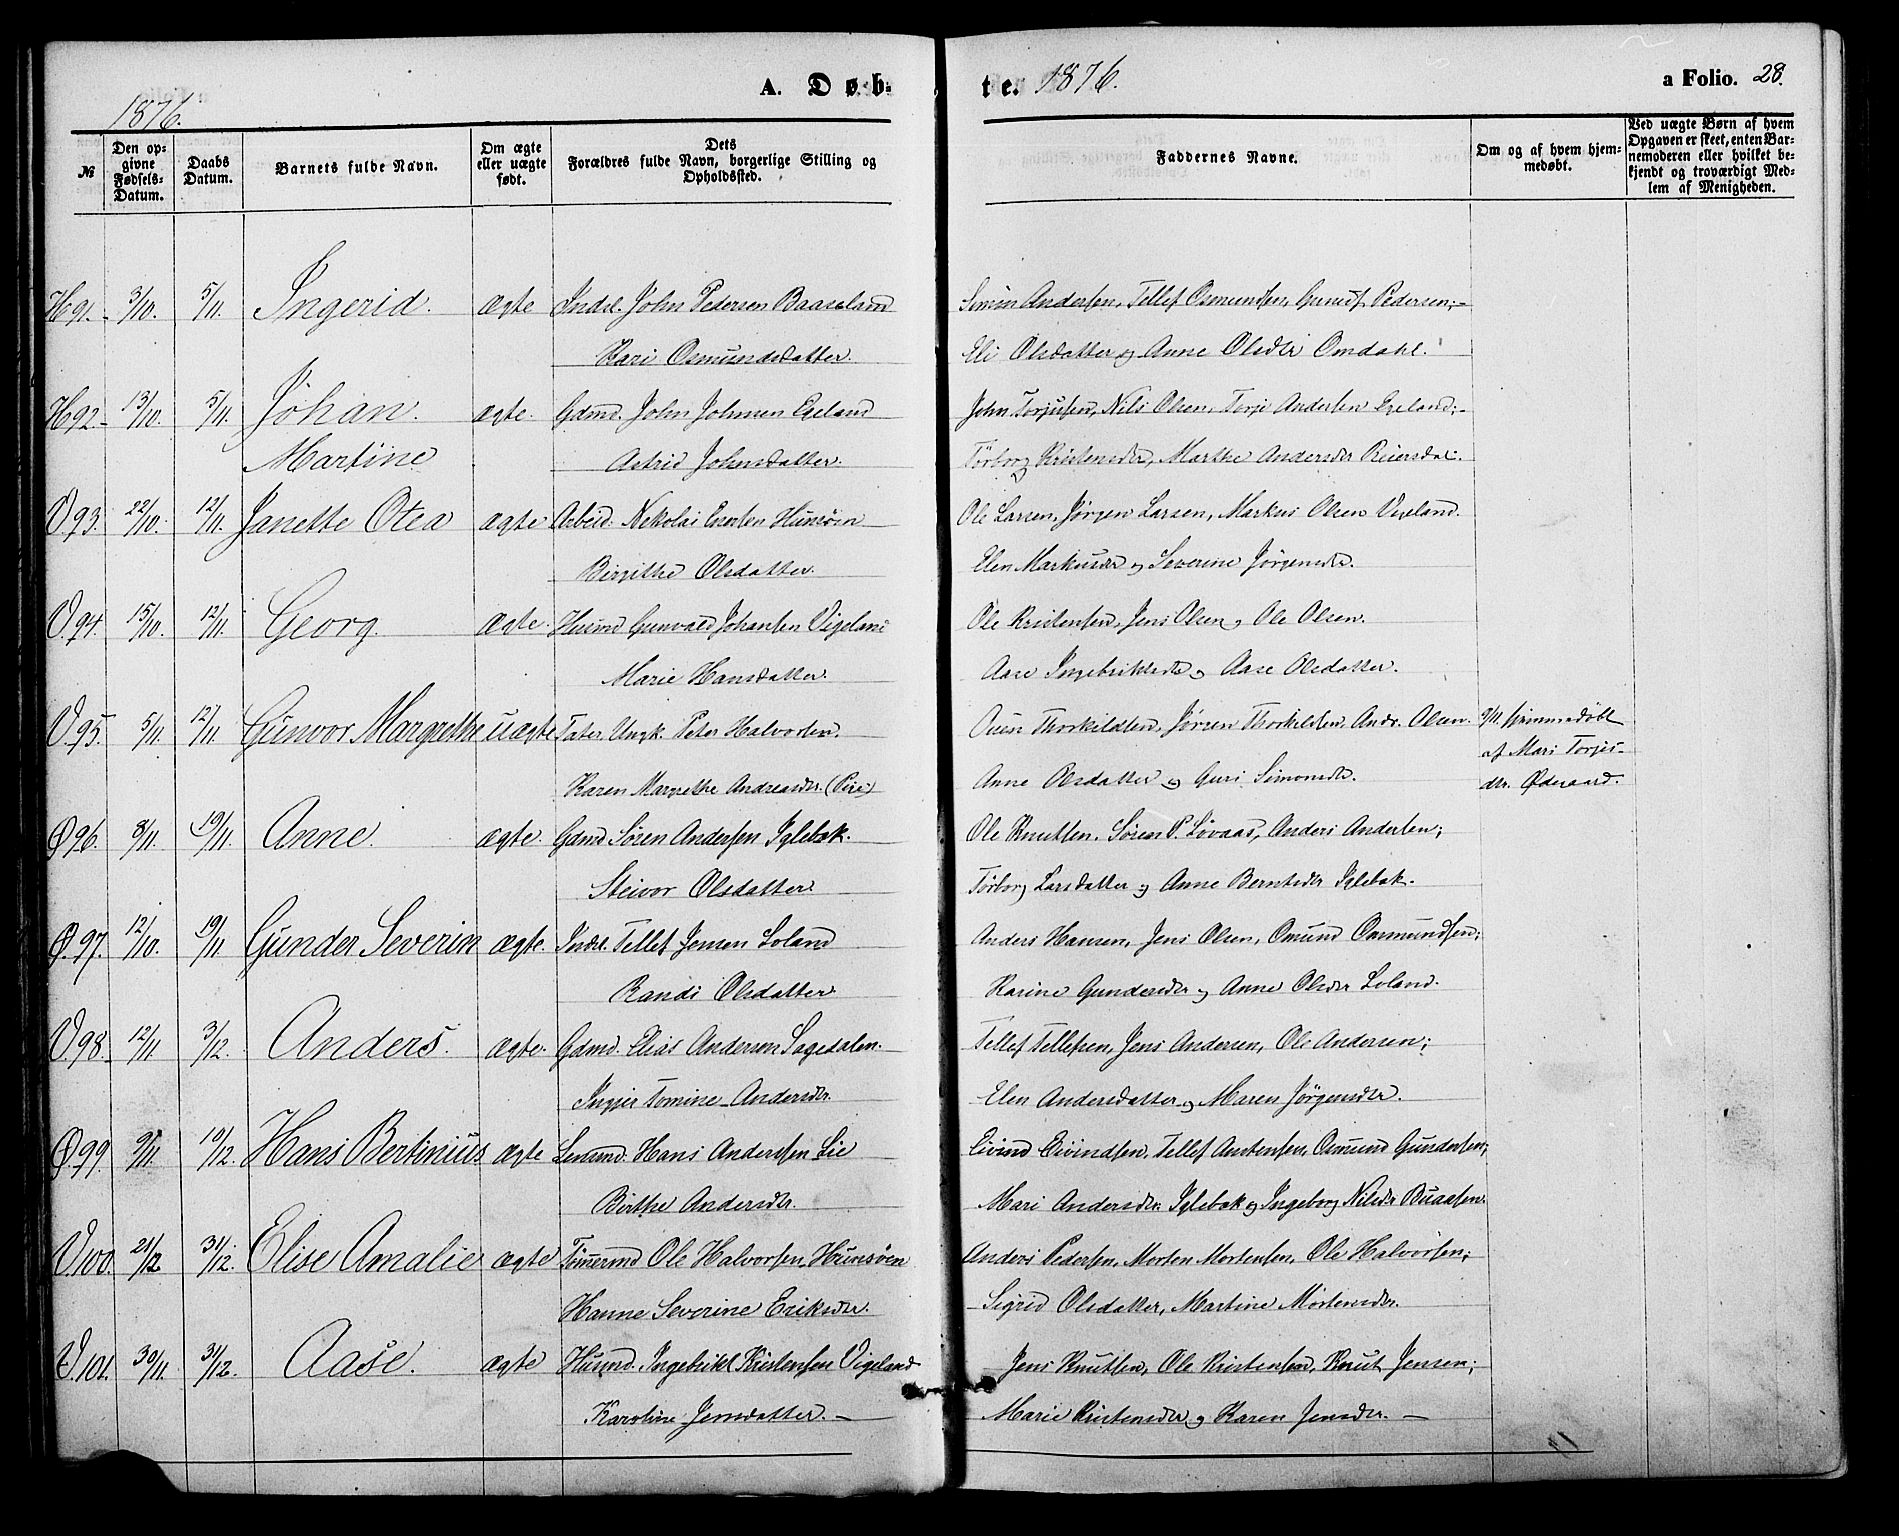 A. Døb-
te. 1876. a Folio. 28.
1876.
№ Den opgivne Fødsels-Datum. Daabs Datum. Barnets fulde Navn. Om ægte eller uægte født. Dets Forældres fulde Navn, borgerlige Stilling og Opholdssted. Faddernes Navne. Om og af hvem hjemmedøbt. Ved uægte Børn af hvem Opgaven er skeet, enten Barnemoderen eller hvilket bekjendt og troværdigt Medlem af Menigheden.
H91. 3/10. 5/11. Ingerid. ægte Indsl. John Pedersen Baaseland Simon Andersen, Tellef Osmundsen, Pedersen;
Kari Osmundsdatter. Eli Olsdatter og Anne Olsdtr Omdahl.
H92. 13/10. 5/11. Johan ægte. Gdmd. John Johnsen Egeland John Torjusen, Nils Olsen, Torje Andersen Egeland;
Martine Astrid Johnsdatter. Torborg Kristensdtr, Marthe Andersdtr Reiersdal.
V.93. 22/10. 12/11. Janette Otea ægte Arbeid. Nikolai Hunsøen Ole Larsen, Jørgen Larsen, Markus Olsen Vigeland.
Birgithe Olsdatter. Elen Markusdtr og Severine Jørgensdtr.
V.94. 15/10. 12/11. Georg. ægte. Husmd Gunvald Johansen Vigeland Ole Kristensen, Jens Olsen og Ole Olsen.
Marie Hansdatter. Aase Ingebriktsdtr og Aase Olsdatter.
V.95. 5/11. 12/11. Gunvor Margrethe uægte Tater Ungk. Peter Halvorsen, Thorkildsen, Jørgen Thorkildsen, Andr. Olsen. hjemmedøbt
af Mari Torjus-
Karen Margrethe Andreasdtr. Anne Olsdatter og Guri Simonsdtr. dtr. Ødegaard.
Ø96. 8/11. 19/11. Anne. ægte. Gdmd Søren Andersen Iglebæk. Ole Knutsen, Søren P. Løvaas, Anders Andersen;
Steivor Olsdatter Torborg Larsdatter og Anne Berntsdtr Iglebæk.
Ø.97. 12/10. 19/11. Gunder Severin ægte. Indsl. Tellef Jensen Loland Anders Hansen, Jens Olsen, Omund Osmundsen;
Randi Olsdatter Karine Gundersdtr og Anne Olsdtr Loland.
V.98. 12/11. 3/12. Anders. ægte. Gdmd. Elias Andersen Sagedalen. Tellef Tellefsen, Jens Andersen, Ole Andersen;
Inger Tomine Andersdtr. Elen Andersdatter og Maren Jørgensdtr.
Ø.99. 9/11. 10/12. Hans Bertinius ægte Hans Andersen Lie Eivind Eivindsen, Tellef Anstensen, Osmund Gundersen;
Birthe Andersdtr. Mari Andersdtr. Iglebæk og Ingeborg Nilsdtr Buaasen.
V.100. 21/12 31/12. Elise Amalie ægte Tømermd Ole Halvorsen, Hunsøen Anders Pedersen, Morten Mortensen, Ole Halvorsen;
Hanne Severine Eriksdtr. Sigrid Olsdatter, Martine Mortensdtr.
V.101. 30/11. 31/12. Aase. ægte Husmd. Ingebrikt Kristensen Vigeland Jens Knutsen, Ole Kristensen, Knut Jensen;
Karoline Jensdatter. Marie Kristensdtr og Karen Jensdtr.